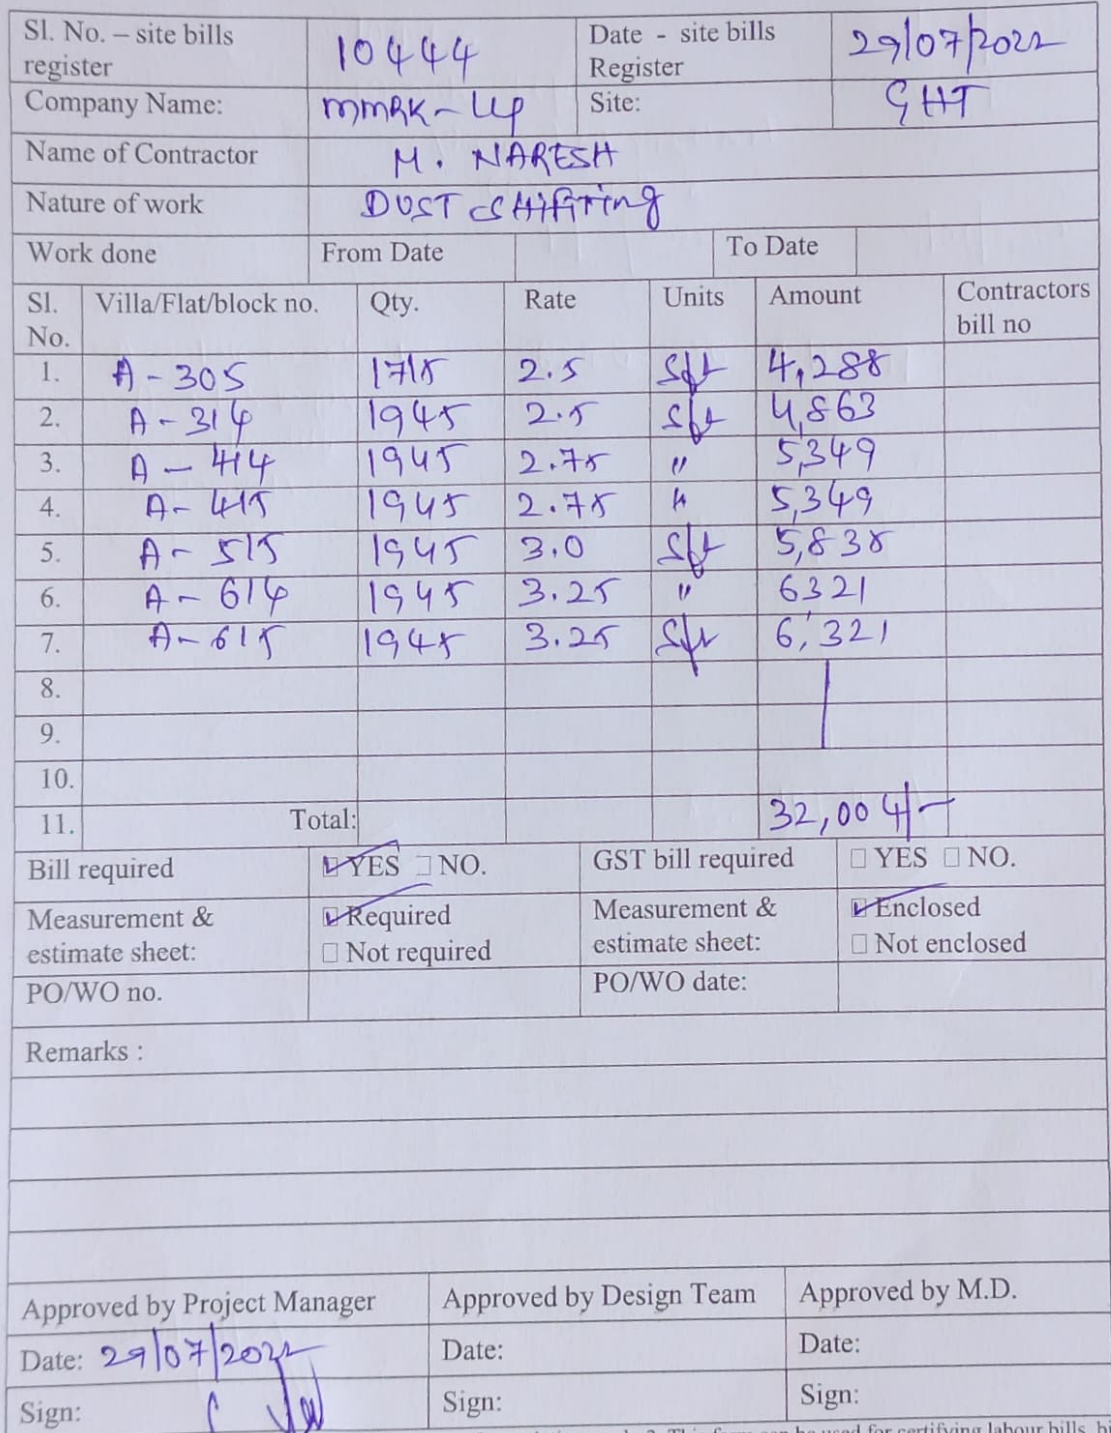 Sl. No. – site bills register 10444 Date - site bills Register 29/07/2022
Company Name: MMRK-LLP Site: GHT
Name of Contractor M. NARESH
Nature of work DUST SHiFTing
Work done From Date To Date
Sl. No. Villa/Flat/block no. Qty. Rate Units Amount Contractors bill no
1. A-305 1715 2.5 Sft 4,288
2. A-314 1945 2.5 Sft 4,863
3. A-414 1945 2.75 " 5,349
4. A-415 1945 2.75 " 5,349
5. A-515 1945 3.0 Sft 5,835
6. A-614 1945 3.25 " 6321
7. A-615 1945 3.25 Sft 6,321
8.
9.
10.
11. Total: 32,004/-
Bill required ☑ YES ☐ NO. GST bill required ☐ YES ☐ NO.
Measurement & estimate sheet: ☑ Required ☐ Not required Measurement & estimate sheet: ☑ Enclosed ☐ Not enclosed
PO/WO no. PO/WO date:
Remarks :
Approved by Project Manager Approved by Design Team Approved by M.D.
Date: 29/07/2022 Date: Date:
Sign: Sign: Sign: